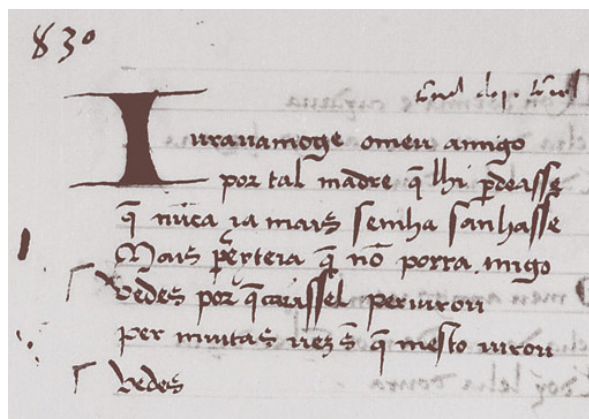 830
tornel
Iurauamoge omeu amigo
por tal madre q̄ lhi ꝑdoasse
q̄ nūca ia mais semha sanhasse
Mais prēyteia q̄ nō porra migo
Vedes por q̄ ca issel periurou
per muitas uezs̄ q̄ mesto iurou
Vedes